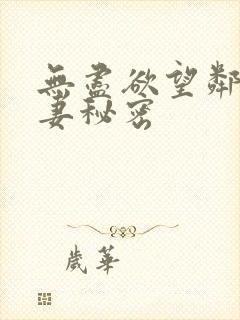 無盡欲望鄰
妻秘密
歲華